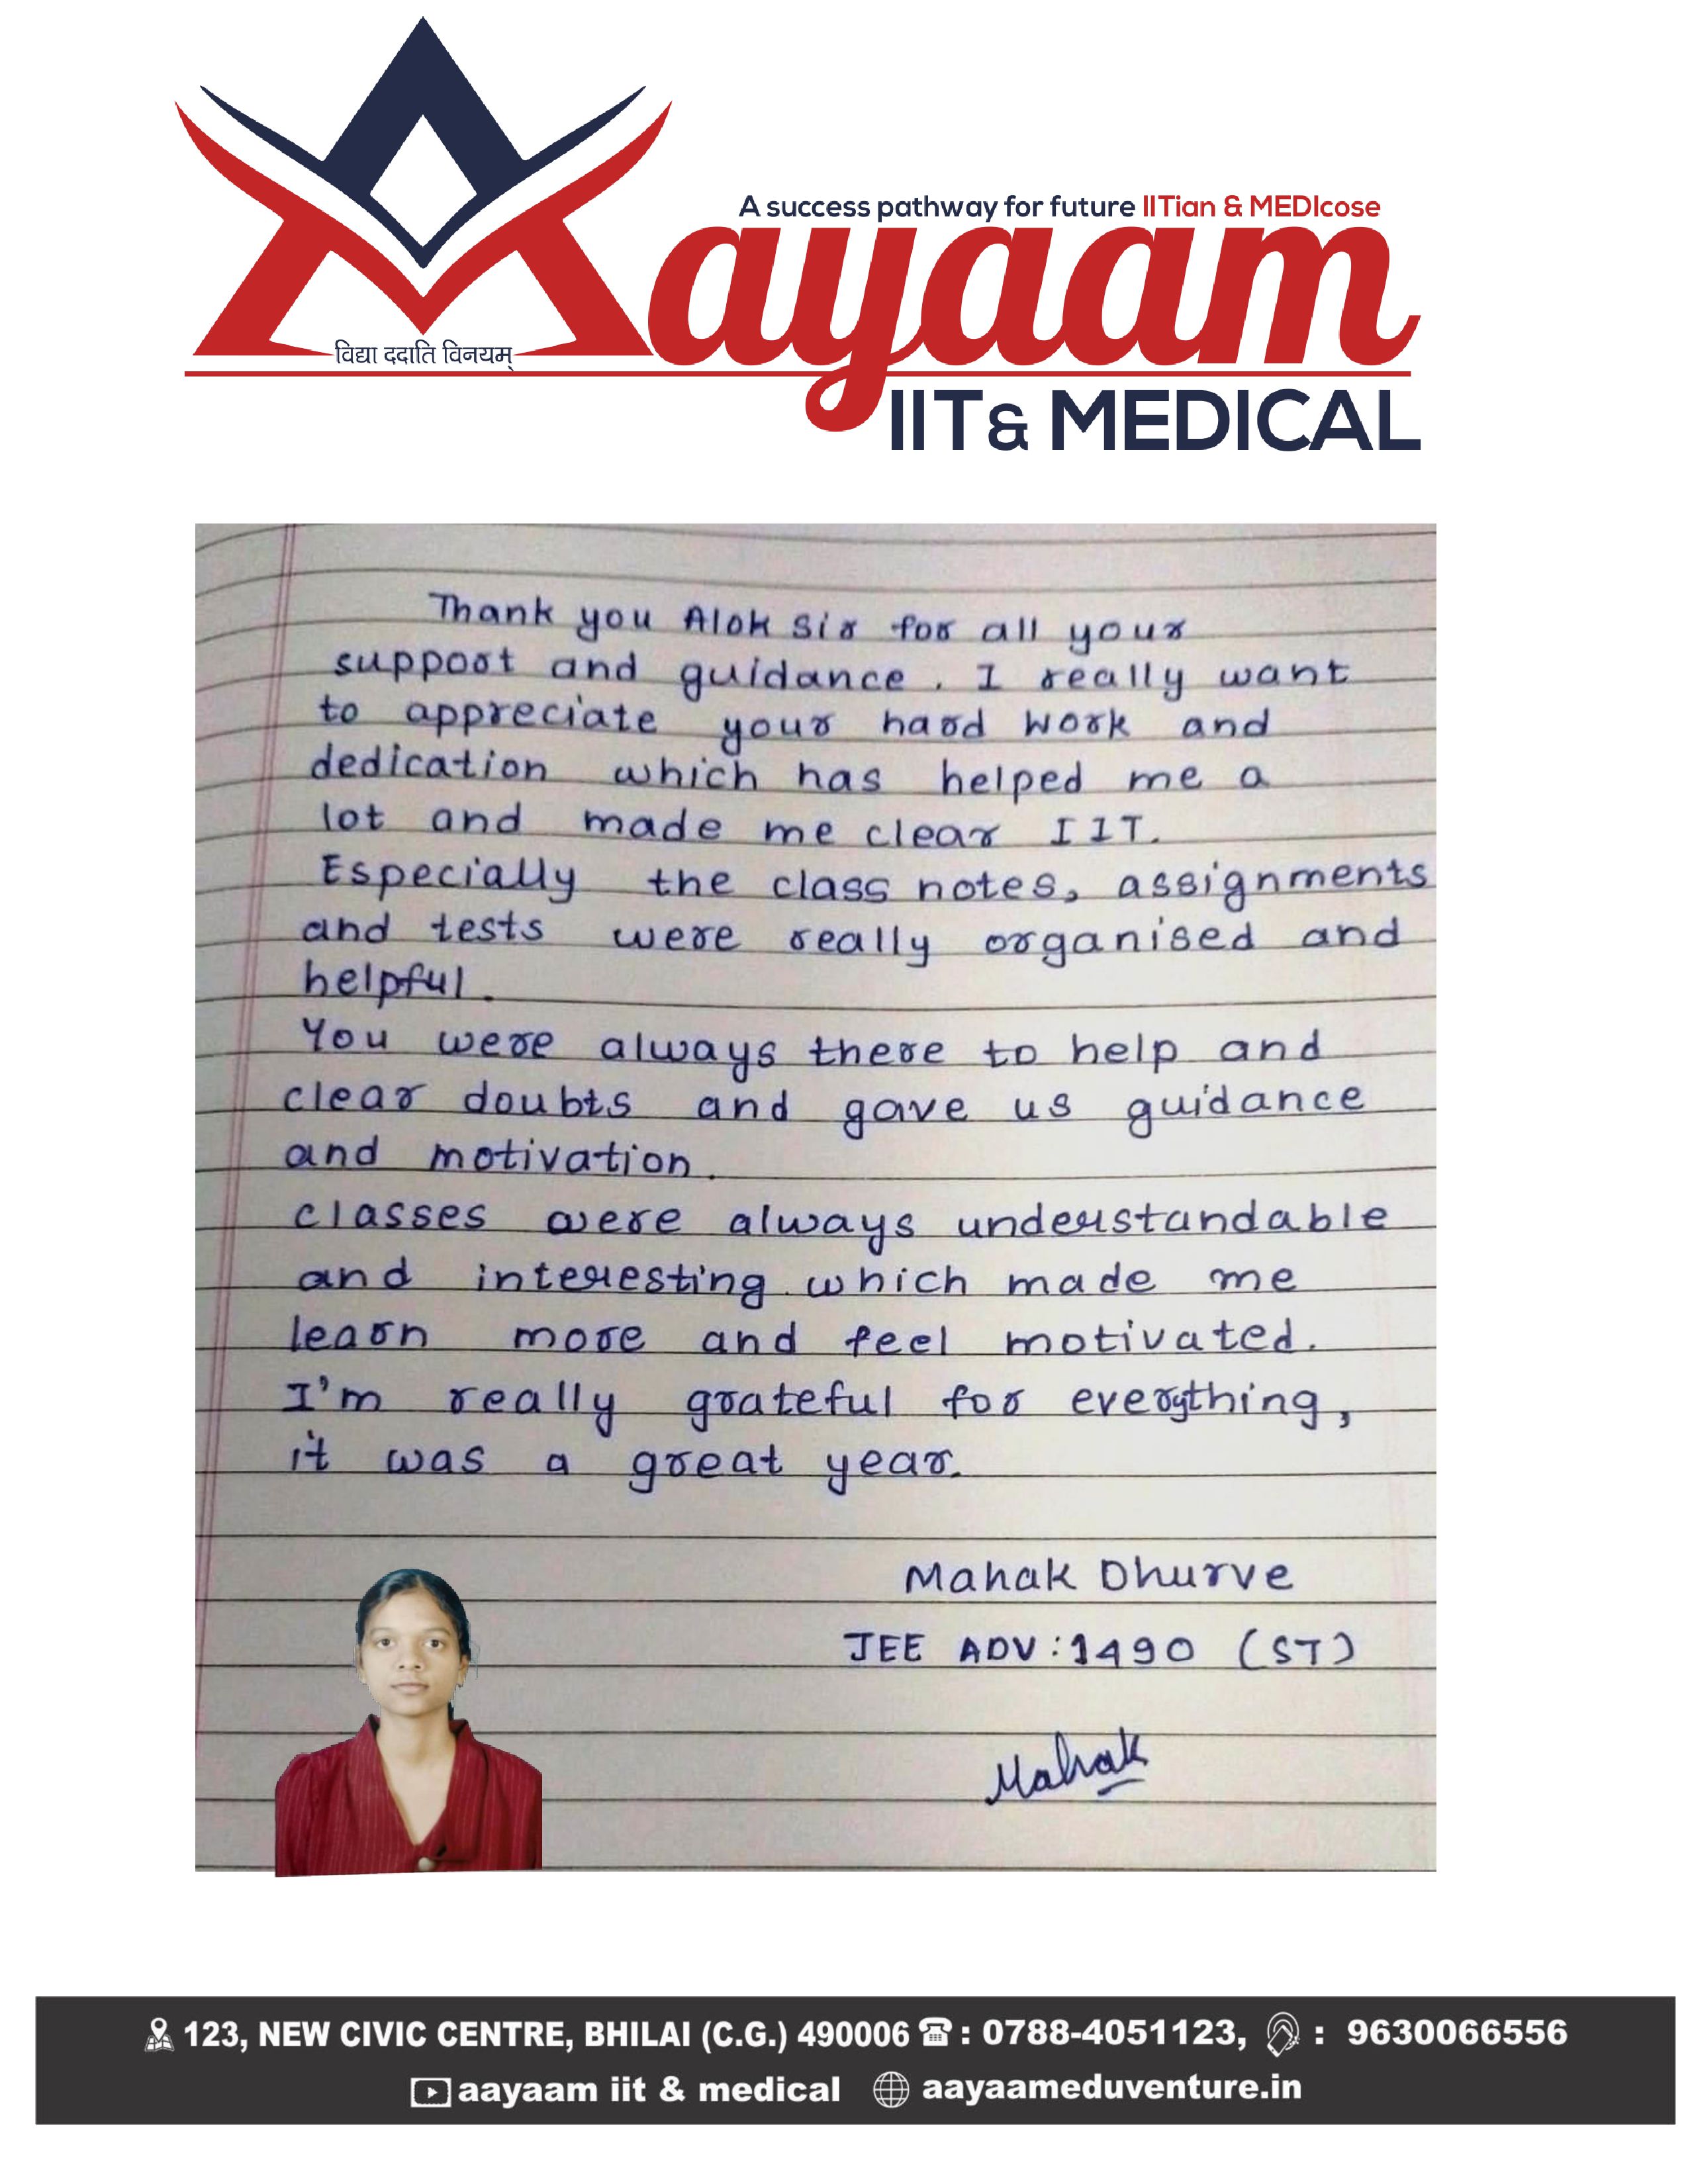 A success pathway for future IITian & MEDIcose
Aayaam
विद्या ददाति विनयम्
IIT & MEDICAL
Thank you Alok Sir for all your
support and guidance. I really want
to appreciate your hard work and
dedication which has helped me a
lot and made me clear IIT.
Especially the class notes, assignments
and tests were really organised and
helpful.
You were always there to help and
clear doubts and gave us guidance
and motivation.
classes were always understandable
and interesting which made me
learn more and feel motivated.
I'm really grateful for everything,
it was a great year.
Mahak Dhurve
JEE ADV : 1490 (ST)
Mahak
123, NEW CIVIC CENTRE, BHILAI (C.G.) 490006 : 0788-4051123, : 9630066556
aayaam iit & medical aayaameduventure.in